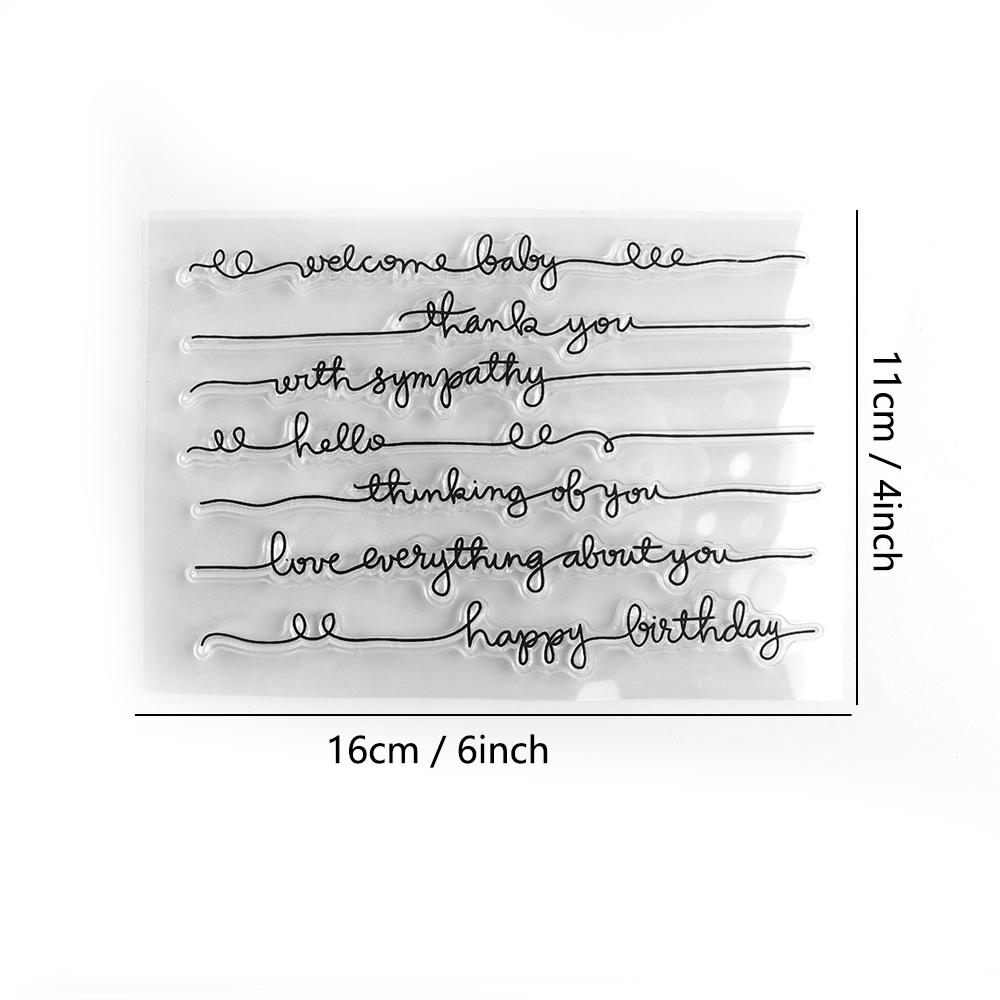 welcome baby
thank you
with sympathy
hello
thinking of you
love everything about you
happy birthday
11cm / 4inch
16cm / 6inch